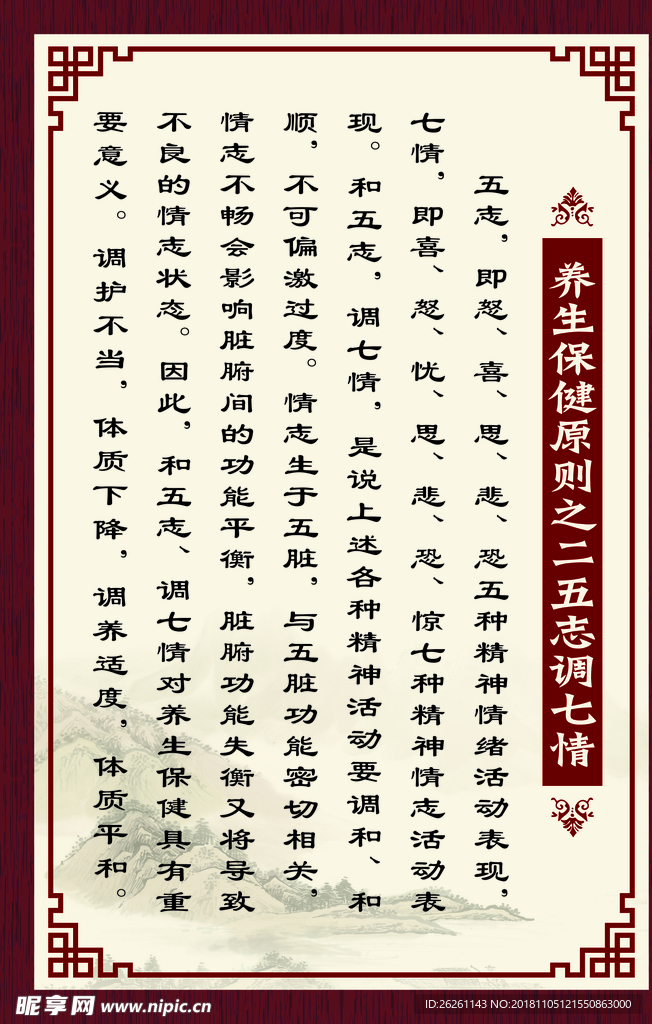 养生保健原则之二五志调七情
五志，即怒、喜、思、悲、恐五种精神情绪活动表现，
七情，即喜、怒、忧、思、悲、恐、惊七种精神情志活动表
现。和五志，调七情，是说上述各种精神活动要调和、和
顺，不可偏激过度。情志生于五脏，与五脏功能密切相关，
情志不畅会影响脏腑间的功能平衡，脏腑功能失衡又将导致
不良的情志状态。因此，和五志、调七情对养生保健具有重
要意义。调护不当，体质下降，调养适度，体质平和。
昵享网 www.nipic.cn
ID:26261143 NO:20181105121550863000